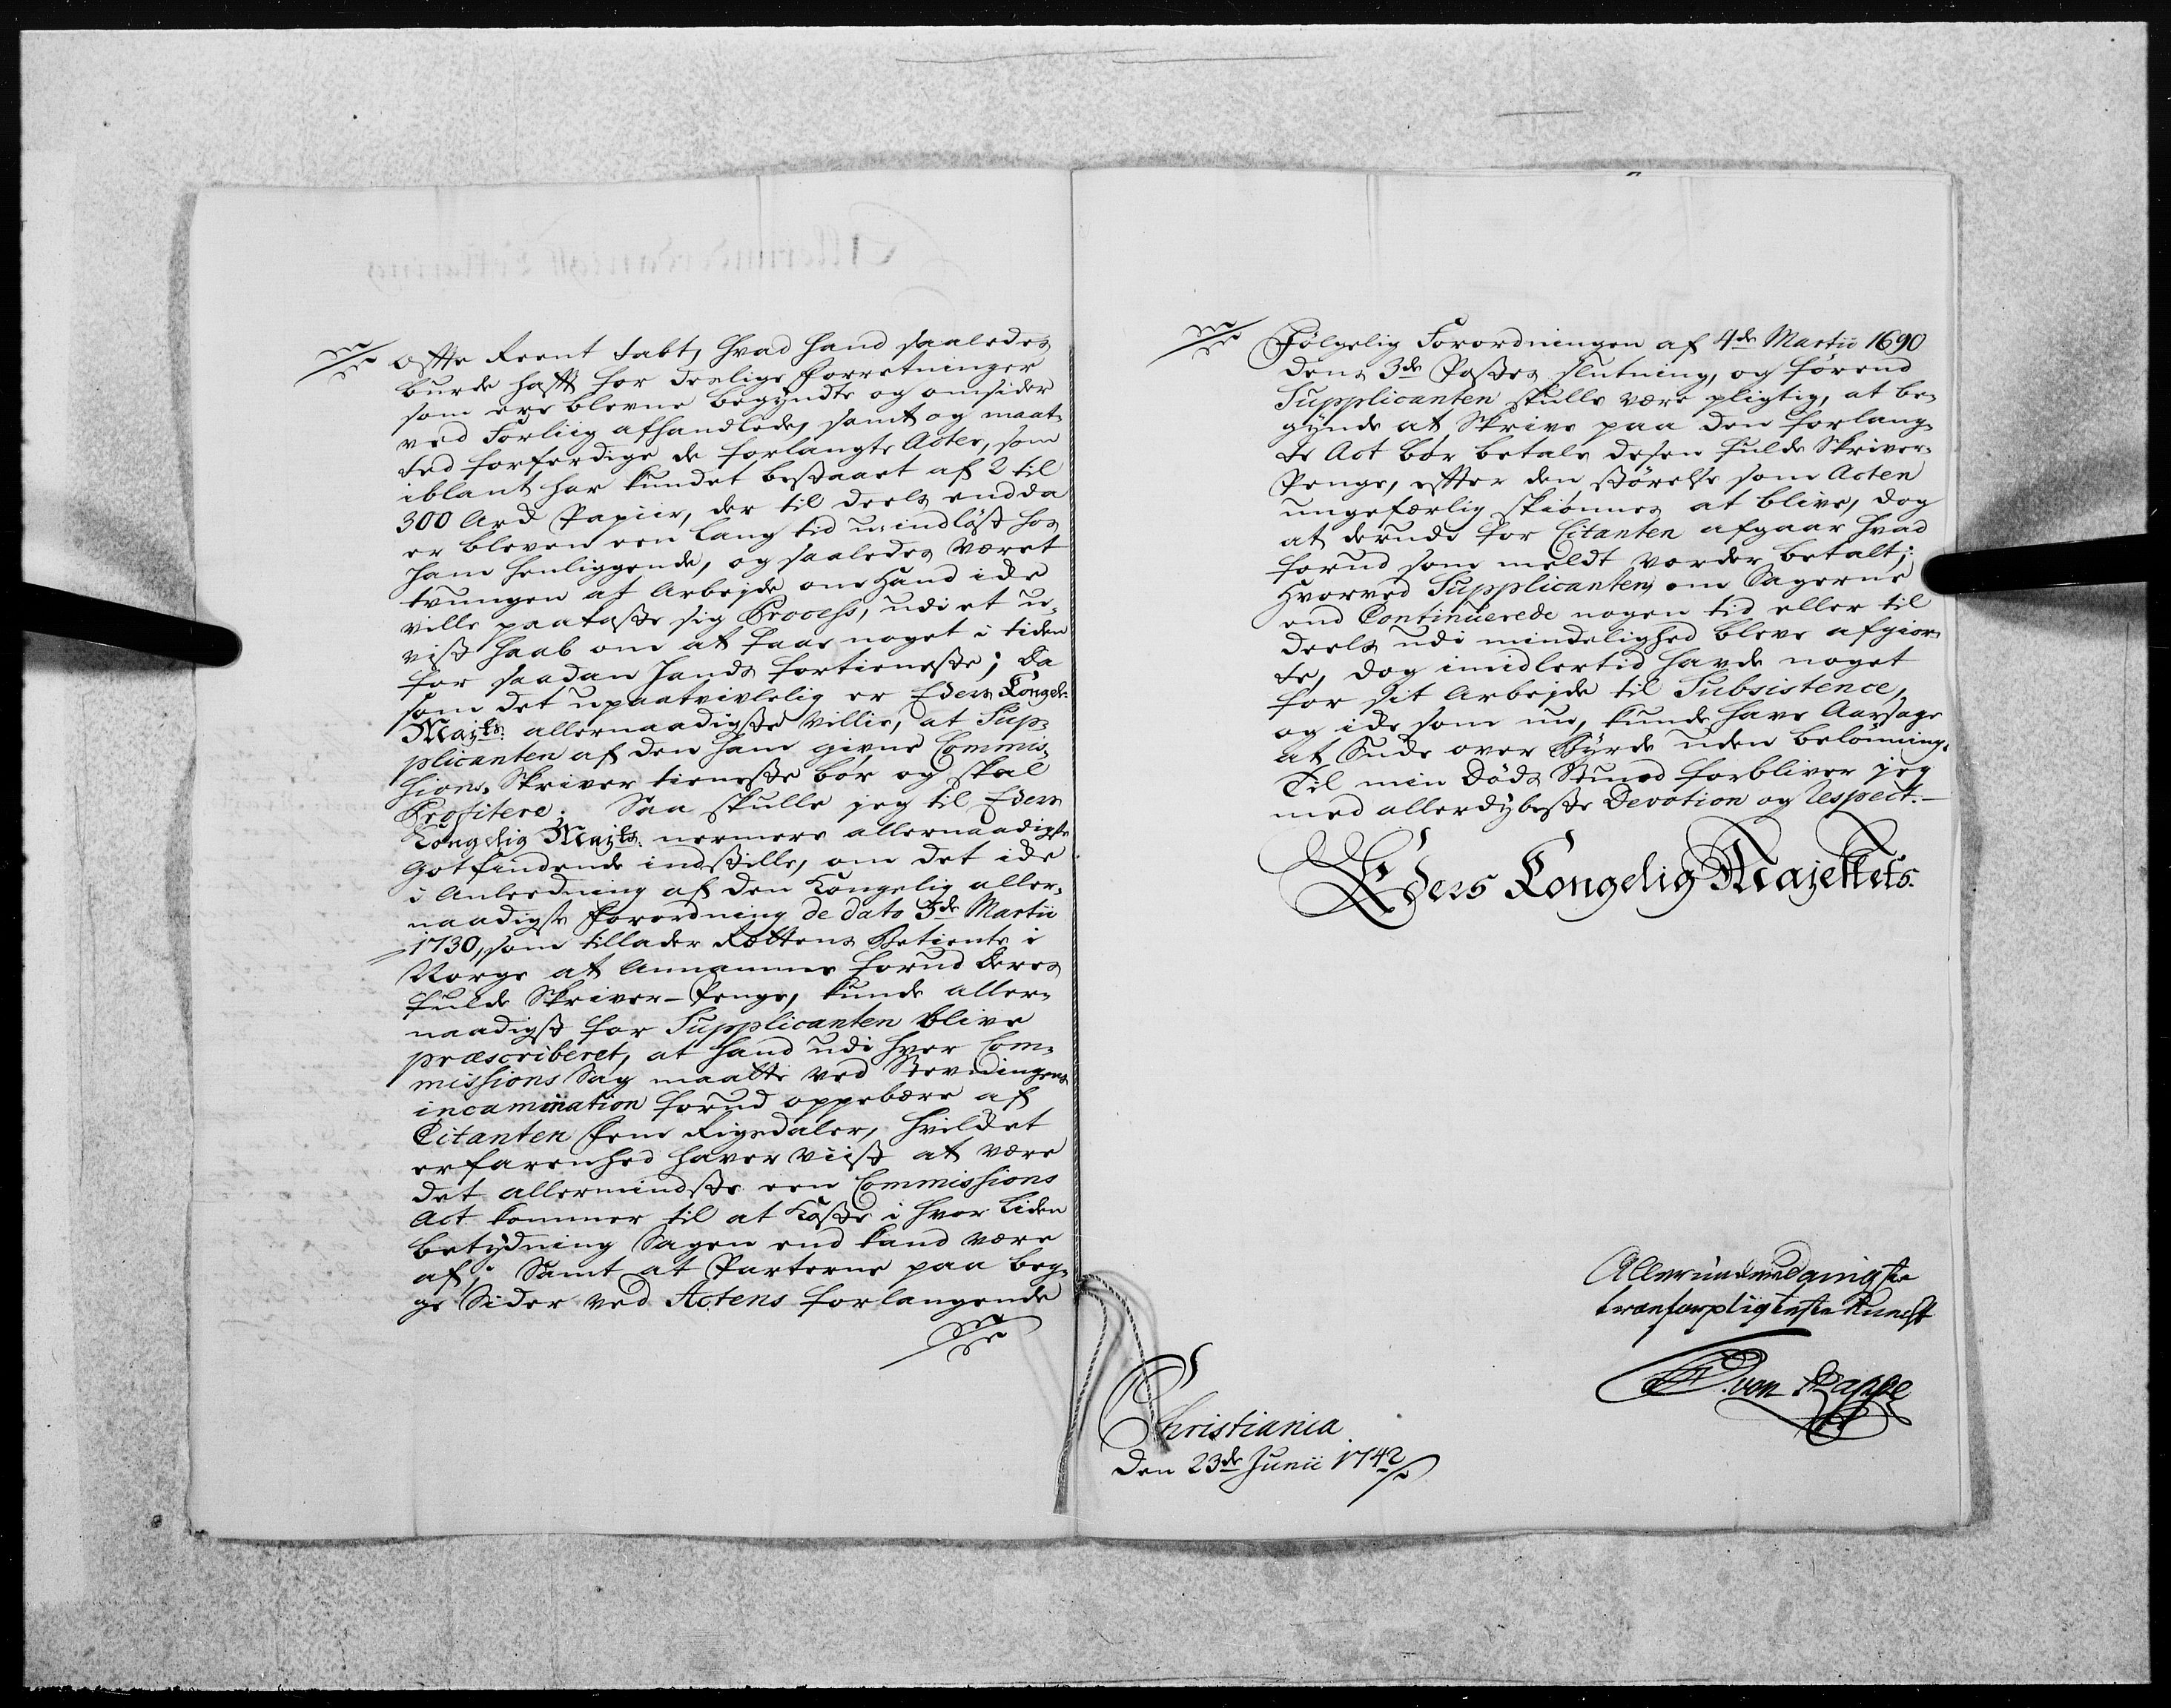 offte Reent tabt, hvad hand saaledes
burde hafft for deslige forretninger
som ere blevne begyndte og omsider
ved Forliig afhandlede, samt og maat¬
ted forferdige de forlangte Acter, som
iblant har kundet bestaaet af 2 til
300 Ark Papiir, der til deels endda
er bleven een lang tid u-indløst hos
ham henliggende, og saaledes været
tvungen at Arbejde om hand icke
ville paataste sig Process, udi et u¬
vist haab om at faae noget i tiden
for saadan hands fortieneste; Da
som det upaatvivlelig er Eders Kongel:
Mayts: allernaadigste Villie, at Sup¬
plicanten af den ham givne Commis¬
sions-Skriver tieneste bør og skal
Profitere. Saa skulle jeg til Eders
Kongelig Mayts: nermere allernaadigste
Gotfindende indstille, om det icke
i Anleedning af den Kongelig aller¬
naadigste Forordning de dato 3de Martii
1730, som tillader Rettens Betiente i
Norge at Annamme forud deres
fulde Skriver-Penge, kunde aller¬
naadigst for Supplicanten blive
præscriberet, at hand udi hver Com¬
missions Sag maatte ved Stevningens
incamination forud oppebære af
Citanten fem Rigsdaler, hvilcket
erfarenhed haver viist at være
det allermindste een Commissions
Act kommer til at koste i hvor liden
betydning Sagen end kand være
af; Samt at Parterne paa beg¬
ge Sider ved Actens forlangende
Følgelig Forordningen af 4de Martii 1690
dens 3de Postes slutning, og førend
Supplicanten skulle være pligtig, at be¬
gynde at Skrive paa den forlang¬
te Act bør betale desen fulde Skriver¬
Penge, effter den størelse som Acten
ungefærlig skiønnes at blive, dog
at derudi for Citanten afgaar hvad
forud som meldt vorder betalt;
Hvorved Supplicanten, om Sagerne
end Continuerede nogen tid eller til
deels udi mindelighed bleve afgior¬
te, dog imidlertid havde noget
for sit Arbejde til Subsistence,
og icke som nu, kunde have Aarsage
at Sucke over Byrde uden belønning.
Til min Døds Stund forbliver jeg
med allerdybeste Devotion og Respect.
Eders Kongelig Majestets
Allerunderdanigste
troepligtigste Knecht
von Rappe
Christiania
den 23de Junii 1742